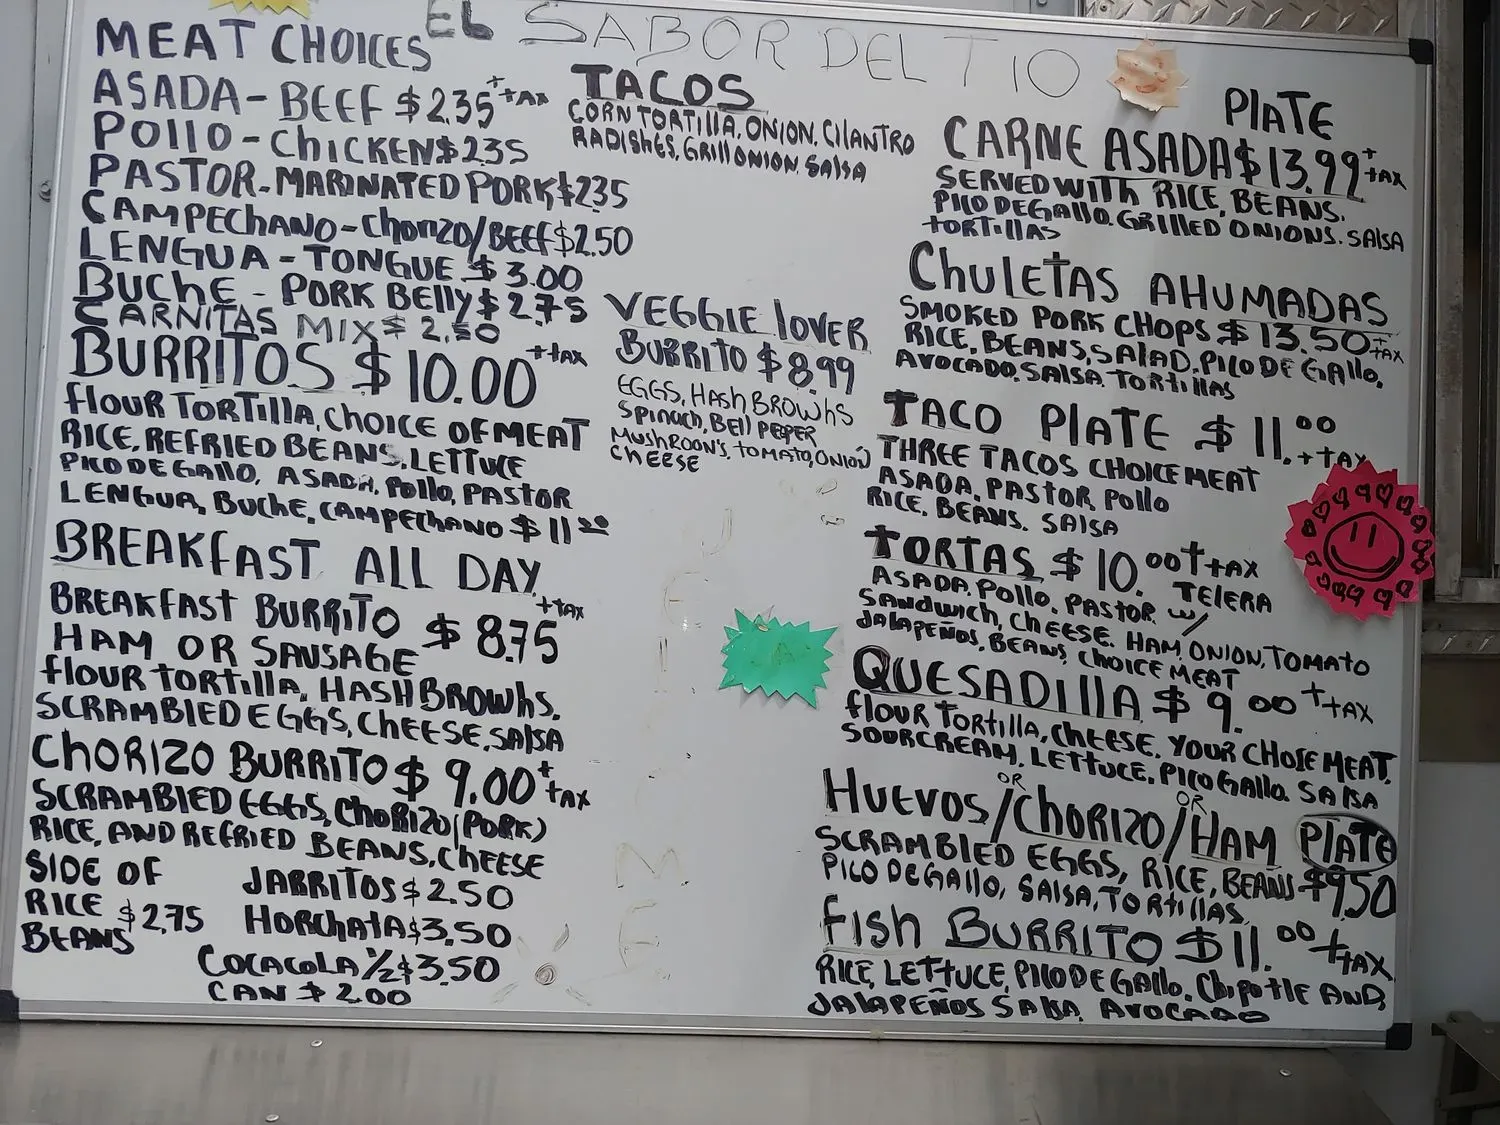 EL SABOR DEL TIO
MEAT CHOICES
ASADA - BEEF $2.35 + TAX
POLLO - CHICKEN $2.35
PASTOR - MARINATED PORK $2.35
CAMPECHANO - CHORIZO/BEEF $2.50
LENGUA - TONGUE $3.00
BUCHE - PORK BELLY $2.75
CARNITAS MIX $2.50
BURRITOS $10.00 + TAX
FLOUR TORTILLA, CHOICE OF MEAT
RICE, REFRIED BEANS, LETTUCE
PICO DE GALLO, ASADA, POLLO, PASTOR
LENGUA, BUCHE, CAMPECHANO $11.00
BREAKFAST ALL DAY
BREAKFAST BURRITO $8.75 + TAX
HAM OR SAUSAGE
FLOUR TORTILLA, HASH BROWNS,
SCRAMBLED EGGS, CHEESE, SALSA
CHORIZO BURRITO $9.00 + TAX
SCRAMBLED EGGS, CHORIZO (PORK)
RICE, AND REFRIED BEANS, CHEESE
SIDE OF
RICE $2.75
BEANS
JARRITOS $2.50
HORCHATA $3.50
COCACOLA 1/2 $3.50
CAN $2.00
TACOS
CORN TORTILLA, ONION, CILANTRO
RADISHES, GRILL ONION SALSA
VEGGIE LOVER
BURRITO $8.99
EGGS, HASH BROWNS
SPINACH, BELL PEPER
MUSHROOM'S, TOMATO, ONION
CHEESE
PLATE
CARNE ASADA $13.99 + TAX
SERVED WITH RICE, BEANS.
PICO DE GALLO. GRILLED ONIONS. SALSA
TORTILLAS
CHULETAS AHUMADAS
SMOKED PORK CHOPS $13.50 + TAX
RICE, BEANS, SALAD, PICO DE GALLO,
AVOCADO, SALSA. TORTILLAS
TACO PLATE $11.00 + TAX
THREE TACOS CHOICE MEAT
ASADA, PASTOR, POLLO
RICE, BEANS. SALSA
TORTAS $10.00 + TAX
ASADA, POLLO, PASTOR w/ TELERA
SANDWICH, CHEESE. HAM, ONION, TOMATO
JALAPEÑOS, BEANS, CHOICE MEAT
QUESADILLA $9.00 + TAX
FLOUR TORTILLA, CHEESE. YOUR CHOSE MEAT.
SOURCREAM, LETTUCE, PICO GALLO. SALSA
HUEVOS/OR CHORIZO/OR HAM PLATE
SCRAMBLED EGGS, RICE, BEANS $9.50
PICO DE GALLO, SALSA, TORTILLAS
FISH BURRITO $11.00 + TAX
RICE, LETTUCE, PICO DE GALLO. CHIPOTLE AND,
JALAPEÑOS SALSA. AVOCADO